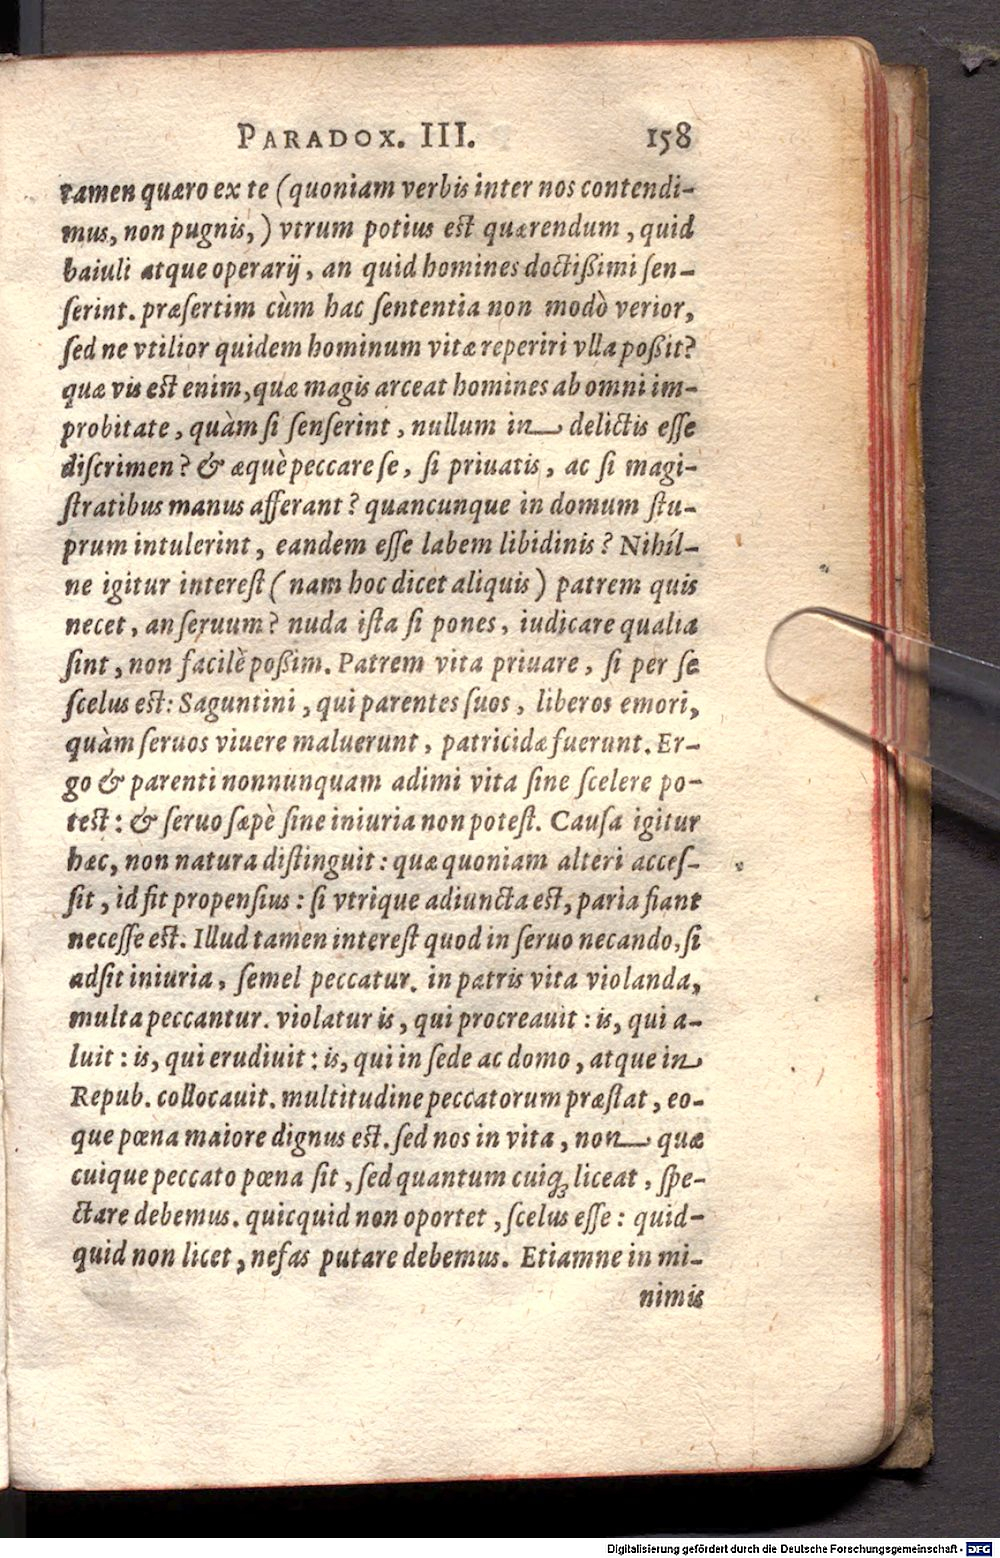 PARADOX. III. 158
tamen quæro ex te (quoniam verbis inter nos contendi-
mus, non pugnis,) vtrum potius est quærendum, quid
baiuli atque operarij, an quid homines doctißimi ſen-
ſerint. præſertim cùm hac ſententia non modò verior,
ſed ne vtilior quidem hominum vitæ reperiri vlla poßit?
quæ vis est enim, quæ magis arceat homines ab omni im-
probitate, quàm ſi ſenſerint, nullum in delictis eſſe
diſcrimen? & æquè peccare ſe, ſi priuatis, ac ſi magi-
ſtratibus manus afferant? quancunque in domum ſtu-
prum intulerint, eandem eſſe labem libidinis? Nihíl-
ne igitur intereſt (nam hoc dicet aliquis) patrem quis
necet, an ſeruum? nuda iſta ſi pones, iudicare qualia
ſint, non facilè poßim. Patrem vita priuare, ſi per ſe
ſcelus est: Saguntini, qui parentes ſuos, liberos emori,
quàm ſeruos viuere maluerunt, patricidæ fuerunt. Er-
go & parenti nonnunquam adimi vita ſine ſcelere po-
test: & ſeruo ſæpè ſine iniuria non poteſt. Cauſa igitur
hæc, non natura diſtinguit: quæ quoniam alteri acceſ-
ſit, id fit propenſius: ſi vtrique adiuncta est, paria fiant
neceſſe est. Illud tamen intereſt quod in ſeruo necando, ſi
adſit iniuria, ſemel peccatur. in patris vita violanda,
multa peccantur. violatur is, qui procreauit: is, qui a-
luit: is, qui erudiuit: is, qui in ſede ac domo, atque in
Repub. collocauit. multitudine peccatorum præſtat, eo-
que pœna maiore dignus est. ſed nos in vita, non quæ
cuique peccato pœna ſit, ſed quantum cuiqꝫ liceat, ſpe-
ctare debemus. quicquid non oportet, ſcelus eſſe: quid-
quid non licet, nefas putare debemus. Etiamne in mi-
nimis
Digitalisierung gefördert durch die Deutsche Forschungsgemeinschaft - DFG